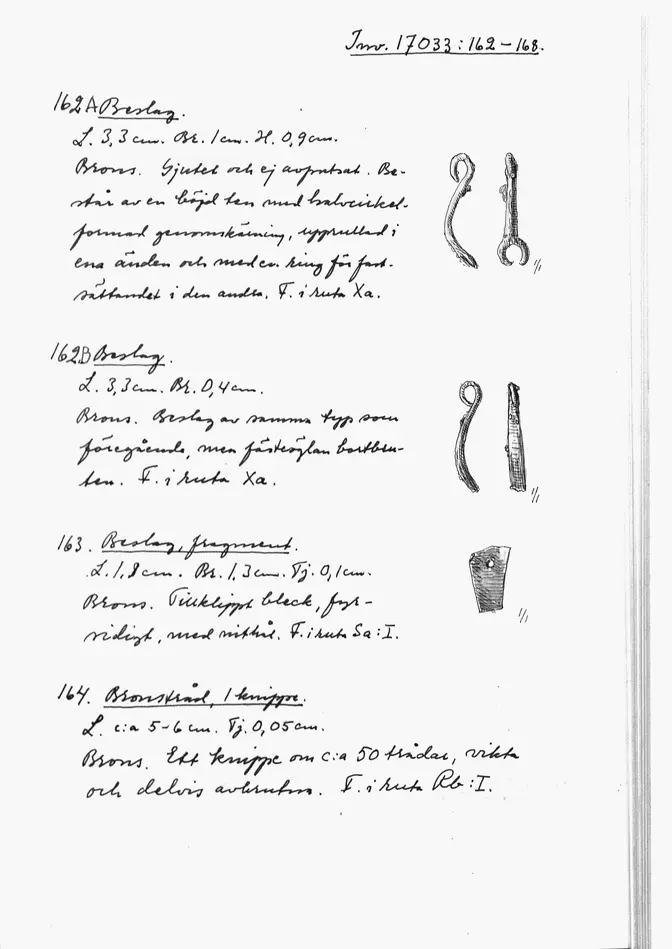 Inv. 17033:162-168.
162A Beslag.
L. 3,3cm. Br. 1cm. H. 0,9cm.
Brons. Gjutet och ej avputsat. Be-
står av en böjd ten med halvcirkel-
formad genomskärning, upprullad i
ena änden och med en ring för fast-
sättandet i den andra. F. i ruta Xa.
1/1
162B Beslag.
L. 3,3cm. Br. 0,4cm.
Brons. Beslag av samma typ som
föregående, men fästöglan bortbru-
ten. F. i ruta Xa.
1/1
163. Beslag, fragment.
L. 1,8cm. Br. 1,3cm. Tj. 0,1cm.
Brons. Tillklippt bleck, fyr-
sidigt, med nithål. F. i ruta Sa:I.
1/1
164. Bronstråd, 1 knippe.
L. c:a 5-6cm. Tj. 0,05cm.
Brons. Ett knippe om c:a 50 trådar, vikta
och delvis avbrutna. F. i ruta Rb:I.